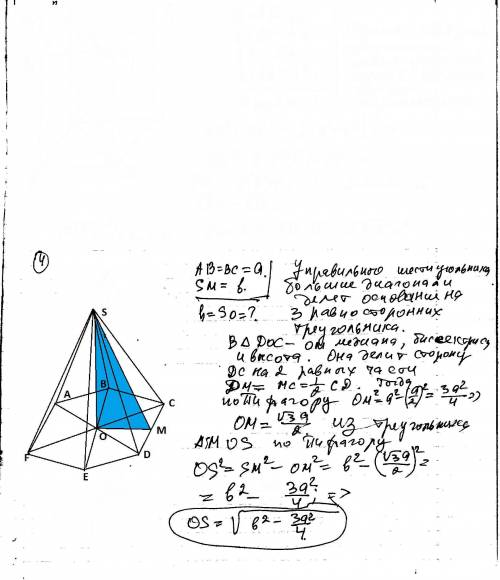 4
AB=BC=a.
SM= b.
h=SO=?
У правильного шестиугольника
большие диагонали
делят основания на
3 равносторонних
треугольника.
В Δ DOC – OM медиана, биссектриса
и высота. Она делит сторону
DC на 2 равных части
DM= MC=1/2 CD. Тогда
по Пифагору OM²=a²-(a/2)²=3a²/4=>
OM=√3a/2 из треугольника
ΔMOS по Пифагору
OS²=SM²-OM²=b²-(√3a/2)²=
=b²- 3a²/4 =>
OS=√b²-3a²/4
S
A
B
C
O
M
F
D
E